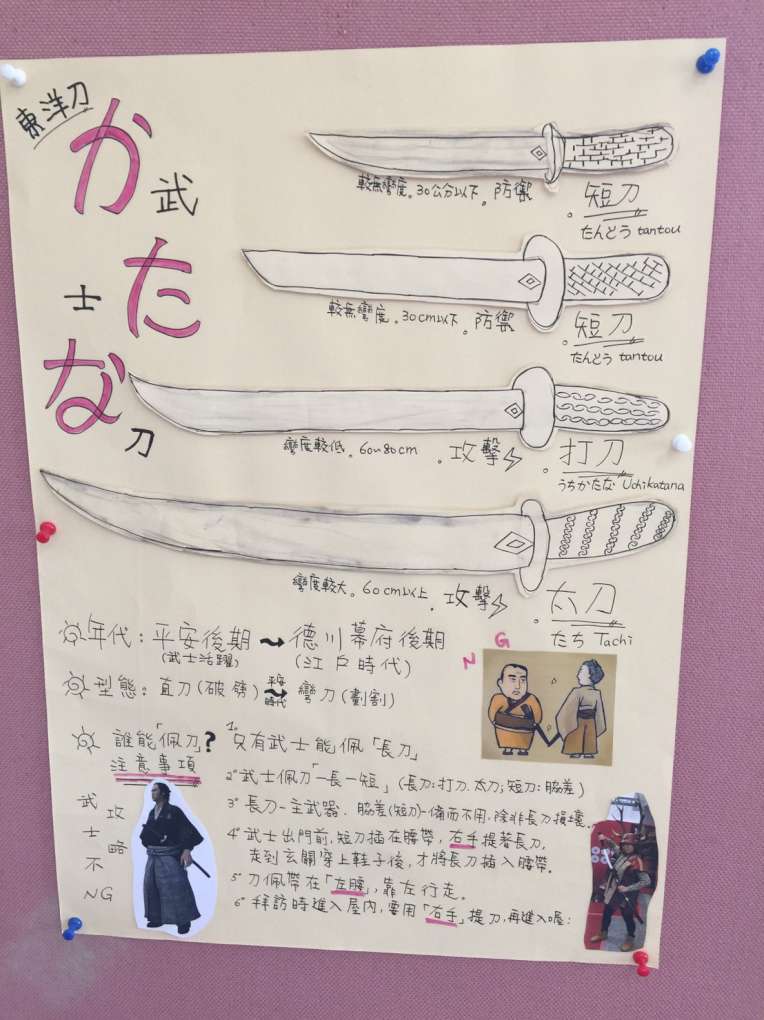 東洋刀
かたな
武士刀
較無彎度。30公分以下。防禦
。短刀
たんとう tantou
較無彎度。30cm以下。防禦
。短刀
たんとう tantou
彎度較低。60~80cm 。攻擊
。打刀
うちかたな Uchikatana
彎度較大。60cm以上。攻擊
。太刀
たち Tachi
年代：平安後期→德川幕府後期
(武士活躍) (江戶時代)
N G
型態：直刀(破甬) 平安時代 彎刀(劃割)
誰能「佩刀」？
注意事項
1° 只有武士能佩「長刀」
2° 武士佩刀「一長一短」(長刀：打刀.太刀；短刀：脇差)
3° 長刀-主武器、脇差(短刀)-備而不用.除非長刀損壞.
4° 武士出門前,短刀插在腰帶,右手提著長刀.
走到玄關穿上鞋子後,才將長刀插入腰帶.
5° 刀佩帶在「左腰」,靠左行走.
6° 拜訪時進入屋內,要用「右手」提刀,再進入喔:
武士不NG
攻略